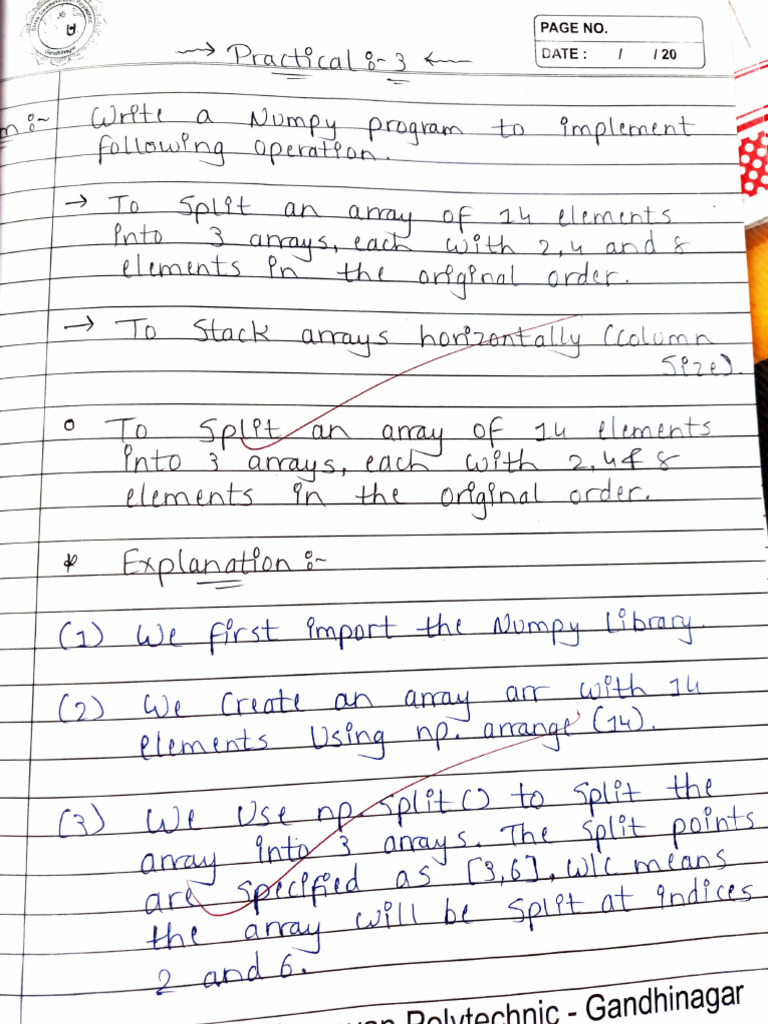 Gandhinagar
PAGE NO.
DATE : / / 20
→ Practical :- 3 ←
Write a Numpy program to implement
following operation.
→ To Split an array of 14 elements
into 3 arrays, each with 2,4 and 8
elements in the original order.
→ To Stack arrays horizontally (column
size).
o To Split an array of 14 elements
into 3 arrays, each with 2,4 & 8
elements in the original order.
* Explanation :-
(1) We first import the Numpy Library.
(2) We Create an array arr with 14
elements Using np. arrange (14).
(3) We Use np.split() to split the
array into 3 arrays. The split points
are specified as [3,6], w/c means
the array will be split at indices
2 and 6.
Polytechnic - Gandhinagar